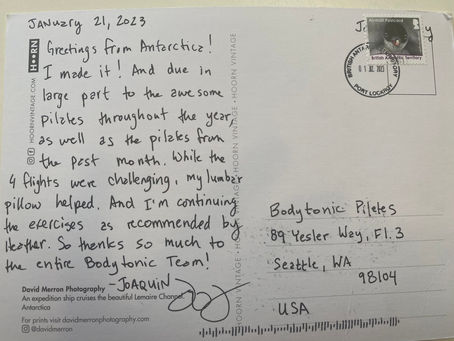 January 21, 2023
Greetings from Antarctica!
I made it! And due in
large part to the awesome
pilates throughout the year,
as well as the pilates from
the past month. While the
4 flights were challenging, my lumbar
pillow helped. And I'm continuing
the exercises as recommended by
Heather. So thanks so much to
the entire Bodytonic Team!
-JOAQUIN
David Merron Photography
An expedition ship cruises the beautiful Lemaire Channel,
Antarctica
For prints visit davidmerronphotography.com
@davidmerron
HOORN
HOORNVINTAGE.COM
HOORN VINTAGE • HOORN VINTAGE • HOORN VINTAGE
Airmail Postcard
British Antarctic Territory
BRITISH ANTARCTIC TERRITORY
PORT LOCKROY
Bodytonic Pilates
89 Yesler Way, Fl. 3
Seattle, WA
98104
USA